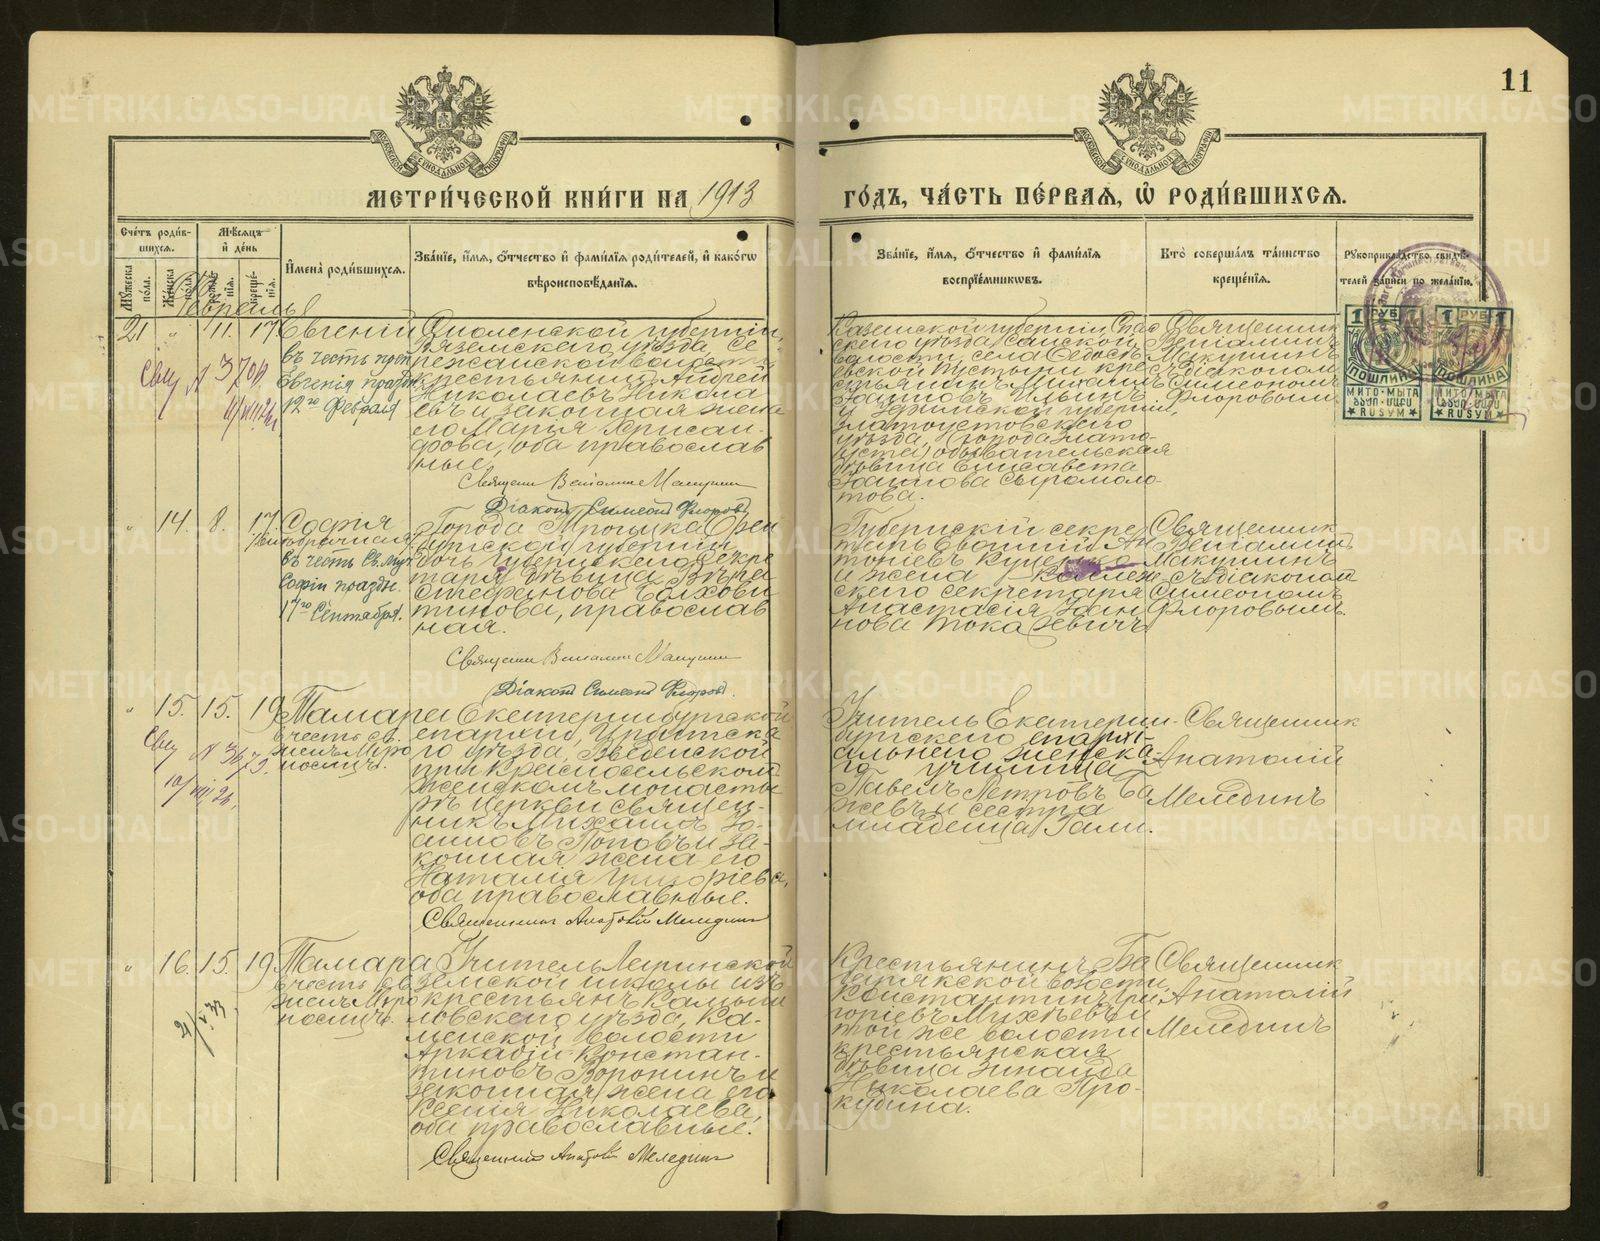 11
МЕТРИ́ЧЕСКОЙ КНИ́ГИ НА 1913
ГО́ДЪ, ЧА́СТЬ ПЕ́РВАЯ, Ѿ РОДИ́ВШИХСЯ.
Сче́тъ роди́в-
шихся.
Му́жеска по́ла.
Же́нска по́ла.
Мѣ́сяцъ
и де́нь
рожде́нія.
креще́нія.
И҆мена̀ роди́вшихся.
Зва́ніе, и҆́мя, ѻ҆́тчество и҆ фами́лія роди́телей, и҆ како́гѡ
вѣроисповѣ́данія.
Зва́ніе, и҆́мя, ѻ҆́тчество и҆ фами́лія
воспріе́мниковъ.
Кто̀ соверша́лъ та́инство
креще́нія.
Рукоприкла́дство свидѣ́-
телей за́писи по жела́нію.
Февраль
21 " 11. 17.
Евгеній
въ честь преп.
Евгенія праздн.
12го февраля
Смоленской губерніи,
Вяземскаго уѣзда, Се
лежанской волости
крестьянинъ Андрей
Николаевъ Никола
евъ и законная жена
его Марія Хрисан-
фова, оба православ
ные.
Священ Веніамин Макушин
Діаконъ Симеонъ Флоровъ
Казанской губерніи, Спас
скаго уѣзда,
волости, села Ѳедосѣ
евской пустыни кре
стьянинъ Михаилъ
Іоанновъ Ильинъ
и Уфимской губерніи,
Златоустовскаго
уѣзда, (города Злато-
уста) обывательская
дѣвица Елисавета
Іоаннова Сыромоло-
това.
Священник
Веніаминъ
Макушинъ
съ діакономъ
Симеономъ
Флоровымъ
1 РУБ 1
ПОШЛИНА
RUSUM
1 РУБ 1
ПОШЛИНА
RUSUM
" 14. 8. 17.
София
внѣбрачная
въ честь Св. муч.
Софіи праздн.
17го Сентября.
Города Троицка Орен
бургской губерніи
дочь Губернскаго Секре
таря дѣвица Вѣра
Стефанова Болхови
тинова, православ
ная.
Священ Веніамин Макушин
Діаконъ Симеонъ Флоровъ.
Губернскій секре
тарь Евфимій Ан
тоніевъ
и жена Коллеж
скаго секретаря
Анастасія Іоан
нова Токаревичъ
Священник
Веніаминъ
Макушинъ
съ діаконом
Симеономъ
Флоровымъ.
" 15. 15. 19.
Тамара
в честь св.
женъ Мѵро
носицъ.
Екатеринбургской
епархіи, Ирбитска
го уѣзда, Введенской
при Красносельскомъ
женскомъ монасты
рѣ церкви священ-
никъ Михаилъ Іо-
анновъ Поповъ и за-
конная жена его
Наталія Григоріева,
оба православные.
Священникъ Анатолій Меледин
Учитель Екатерин-
бургскаго епархі-
альнаго женска-
го училища
Павелъ Петровъ Ба
жевъ и сестра
младенца Гали.
Священник
Анатолій
Мелединъ
" 16. 15. 19.
Тамара
в честь св
женъ Мѵро
носицъ.
Учитель
земской школы изъ
крестьянъ Камыш
ловскаго уѣзда, Ка-
менской волости
Аркадій Констан-
тиновъ Воронинъ и
законная жена его
Ксенія Николаева,
оба православные.
Священникъ Анатолій Меледин
Крестьянинъ Ба
волости,
Константинъ Гри
горіевъ Михѣевъ и
той же волости
крестьянская
дѣвица Зинаида
Николаева Про-
кудина.
Священник
Анатолій
Мелединъ
METRIKI.GASO-URAL.RU